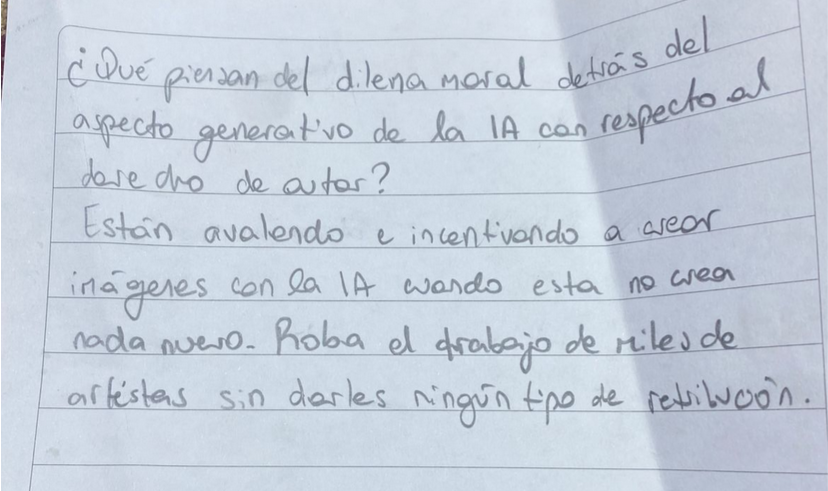 ¿Qué piensan del dilema moral detrás del
aspecto generativo de la IA con respecto al
derecho de autor?
Están avalando e incentivando a crear
imágenes con la IA cuando esta no crea
nada nuevo. Roba el trabajo de miles de
artistas sin darles ningún tipo de retribución.